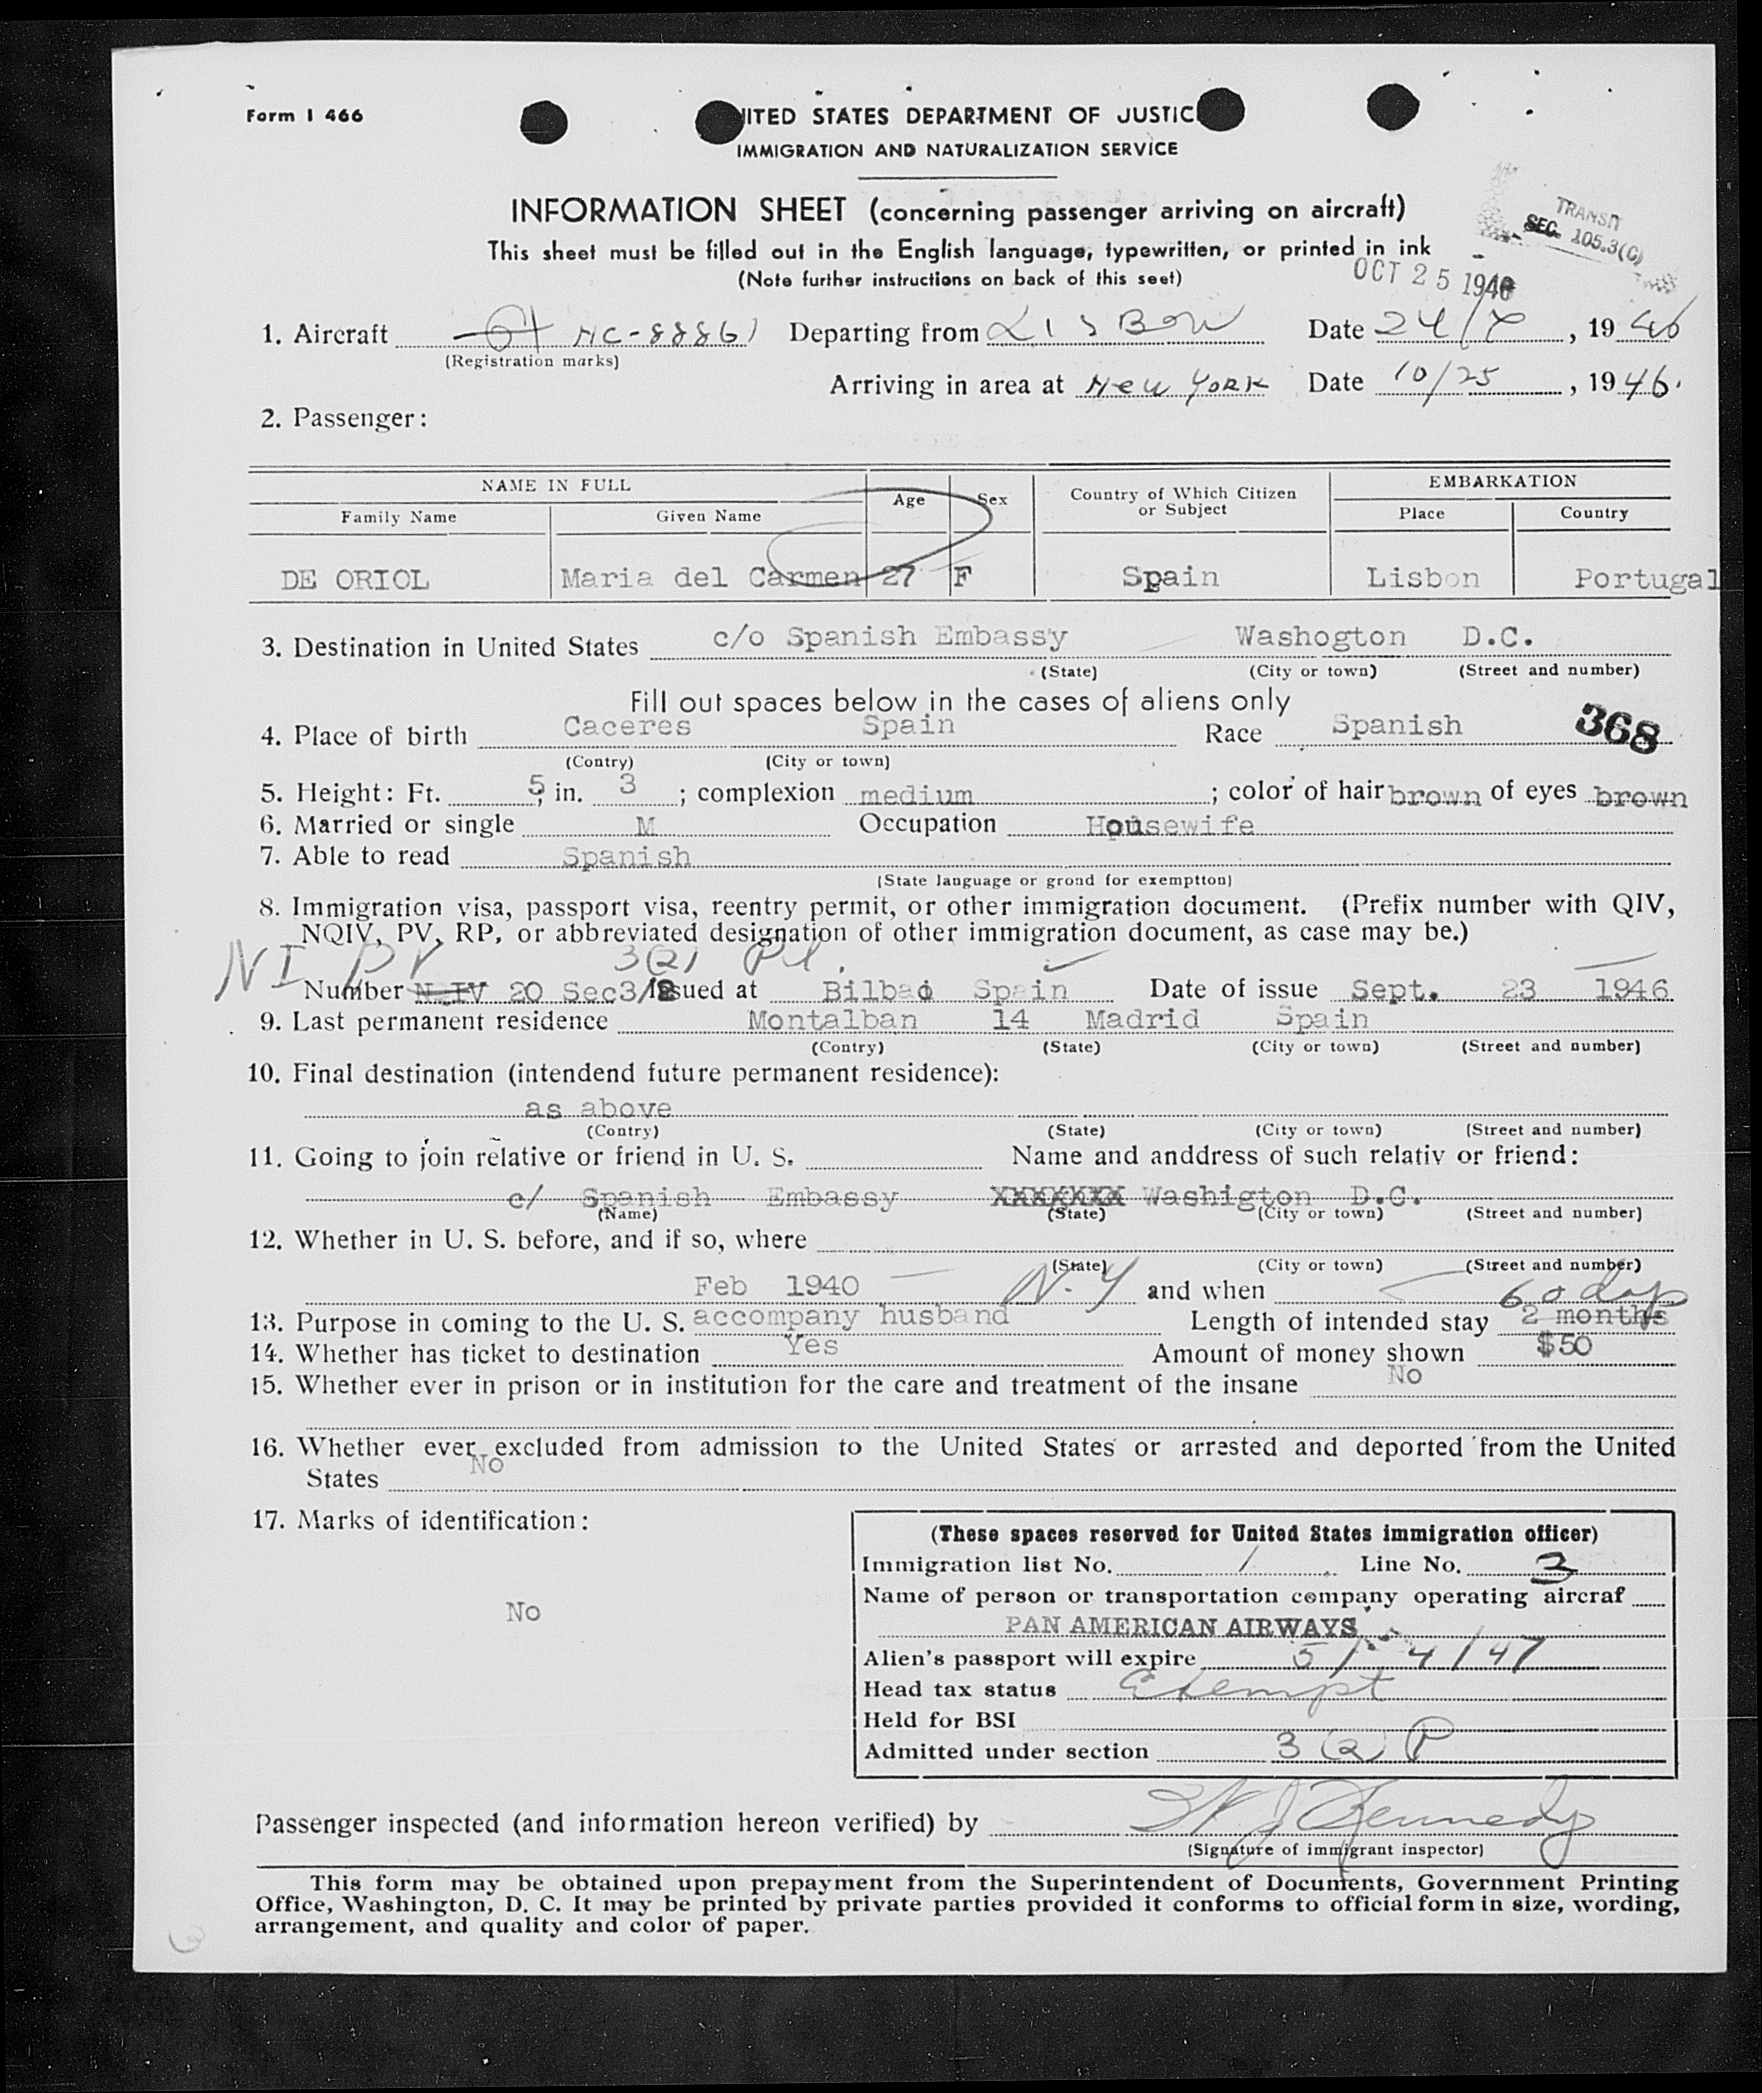 Form I 466
UNITED STATES DEPARTMENT OF JUSTIC
IMMIGRATION AND NATURALIZATION SERVICE
INFORMATION SHEET (concerning passenger arriving on aircraft)
TRANSIT
SEC. 105.3(C)
This sheet must be filled out in the English language, typewritten, or printed in ink
(Note further instructions on back of this seet)
OCT 25 1946
1. Aircraft NC-88861 Departing from LISBON Date 24/ , 19 46
(Registration marks)
Arriving in area at New York Date 10/25 , 1946.
2. Passenger:
NAME IN FULL Age Sex Country of Which Citizen or Subject EMBARKATION
Family Name Given Name Place Country
DE ORIOL Maria del Carmen 27 F Spain Lisbon Portugal
3. Destination in United States c/o Spanish Embassy Washogton D.C.
(State) (City or town) (Street and number)
Fill out spaces below in the cases of aliens only
4. Place of birth Caceres Spain Race Spanish 368
(Contry) (City or town)
5. Height: Ft. 5, in. 3 ; complexion medium ; color of hair brown of eyes brown
6. Married or single M Occupation Housewife
7. Able to read Spanish
(State language or grond for exemptton)
8. Immigration visa, passport visa, reentry permit, or other immigration document. (Prefix number with QIV,
NQIV, PV, RP, or abbreviated designation of other immigration document, as case may be.)
NI PV 3(2) Pl.
Number N IV 20 Sec3/2 Issued at Bilbao Spain Date of issue Sept. 23 1946
9. Last permanent residence Montalban 14 Madrid Spain
(Contry) (State) (City or town) (Street and number)
10. Final destination (intendend future permanent residence):
as above
(Contry) (State) (City or town) (Street and number)
11. Going to join relative or friend in U. S. Name and anddress of such relativ or friend:
c/ Spanish Embassy XXXXXXX Washigton D.C.
(Name) (State) (City or town) (Street and number)
12. Whether in U. S. before, and if so, where
(State) (City or town) (Street and number)
Feb 1940 N.Y and when 60 days
13. Purpose in coming to the U. S. accompany husband Length of intended stay 2 months
14. Whether has ticket to destination Yes Amount of money shown $50
15. Whether ever in prison or in institution for the care and treatment of the insane No
16. Whether ever excluded from admission to the United States or arrested and deported from the United
States No
17. Marks of identification:
No
(These spaces reserved for United States immigration officer)
Immigration list No. 1 Line No. 3
Name of person or transportation company operating aircraf
PAN AMERICAN AIRWAYS
Alien's passport will expire 5/ 4/47
Head tax status Exempt
Held for BSI
Admitted under section 3(2) P
Passenger inspected (and information hereon verified) by Kennedy
(Signature of immigrant inspector)
This form may be obtained upon prepayment from the Superintendent of Documents, Government Printing
Office, Washington, D. C. It may be printed by private parties provided it conforms to official form in size, wording,
arrangement, and quality and color of paper.